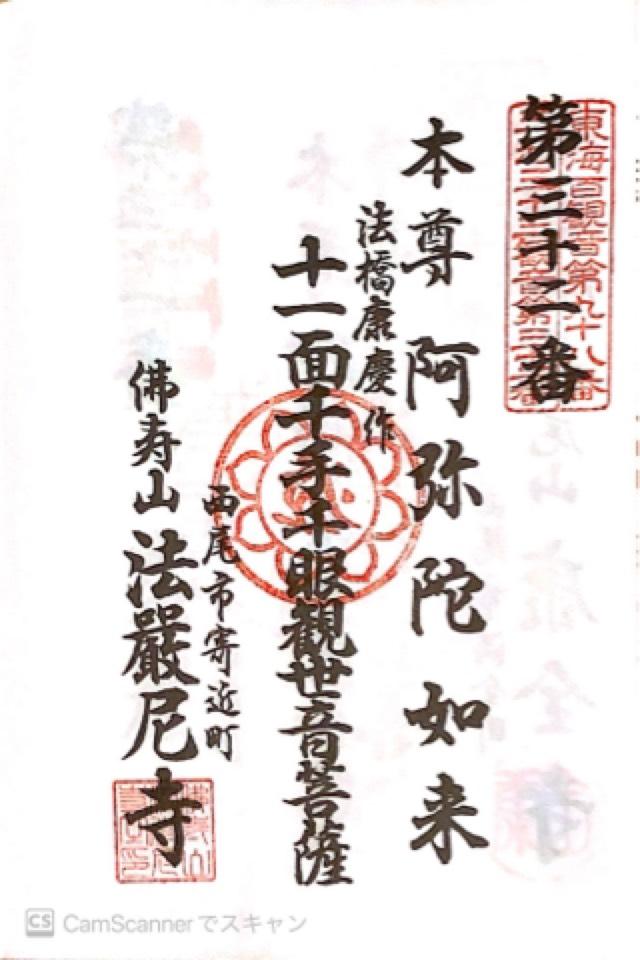 第三十二番
東海百観音第九十八番
本尊 阿弥陀如来
法橋康慶作
十一面千手千眼観世音菩薩
西尾市寄近町
佛寿山 法嚴尼寺
CS CamScannerでスキャン